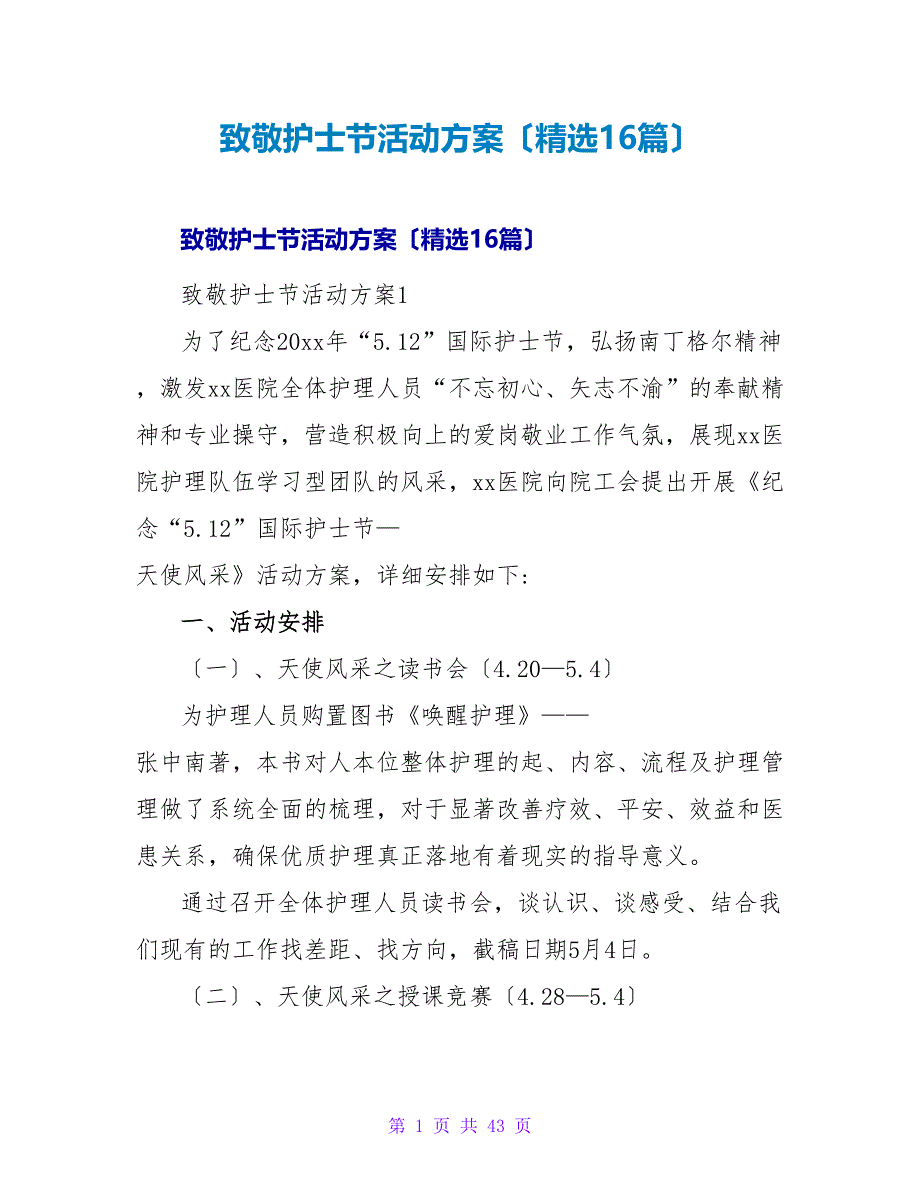 致敬护士节活动方案〔精选16篇〕
致敬护士节活动方案〔精选16篇〕
致敬护士节活动方案1
为了纪念20xx年“5.12”国际护士节，弘扬南丁格尔精神
，激发xx医院全体护理人员“不忘初心、矢志不渝”的奉献精
神和专业操守，营造积极向上的爱岗敬业工作气氛，展现xx医
院护理队伍学习型团队的风采，xx医院向院工会提出开展《纪
念“5.12”国际护士节—
天使风采》活动方案，详细安排如下：
一、活动安排
〔一〕、天使风采之读书会〔4.20—5.4〕
为护理人员购置图书《唤醒护理》——
张中南著，本书对人本位整体护理的起、内容、流程及护理管
理做了系统全面的梳理，对于显著改善疗效、平安、效益和医
患关系，确保优质护理真正落地有着现实的指导意义。
通过召开全体护理人员读书会，谈认识、谈感受、结合我
们现有的工作找差距、找方向，截稿日期5月4日。
〔二〕、天使风采之授课竞赛〔4.28—5.4〕
第 1 页 共 43 页